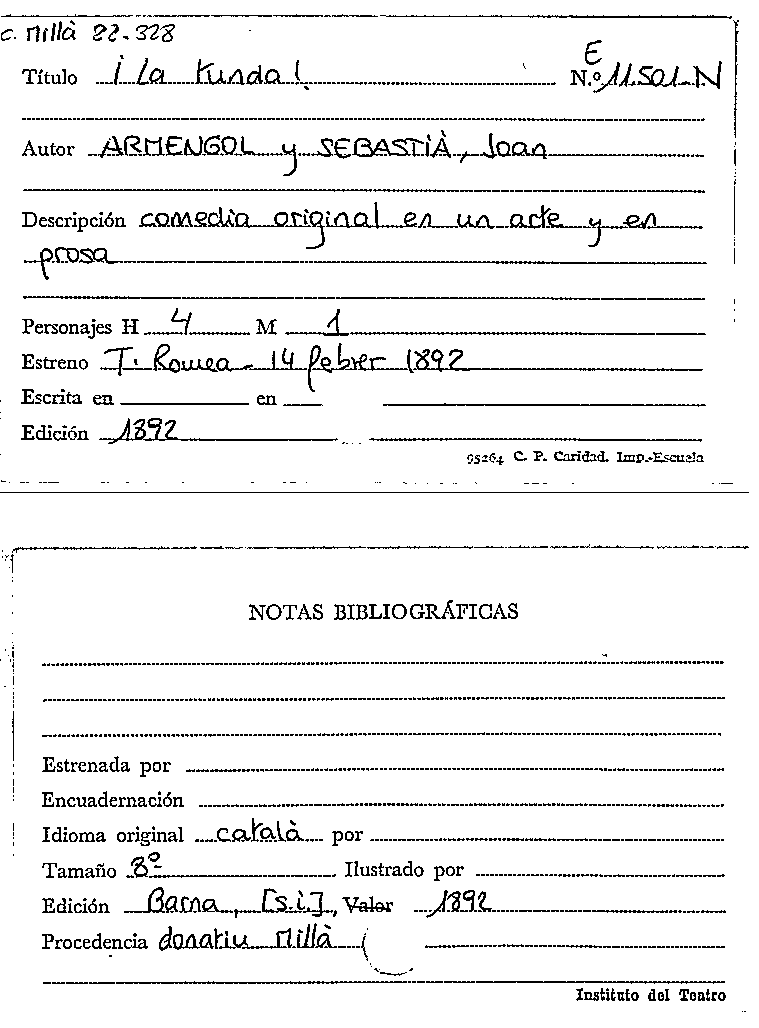 c. Millà 22.328
E
Título ¡La tunda! N.º 11.501-N
Autor ARMENGOL y SEBASTIÀ, Joan
Descripción comedia original en un acte y en
prosa
Personajes H 4 M 1
Estreno T. Romea - 14 febrer 1892
Escrita en en
Edición 1892
95264 C. P. Caridad. Imp.-Escuela
NOTAS BIBLIOGRÁFICAS
Estrenada por
Encuadernación
Idioma original català por
Tamaño 8º Ilustrado por
Edición Barna, [s.i.], Valor 1892
Procedencia donatiu Millà
Instituto del Teatro